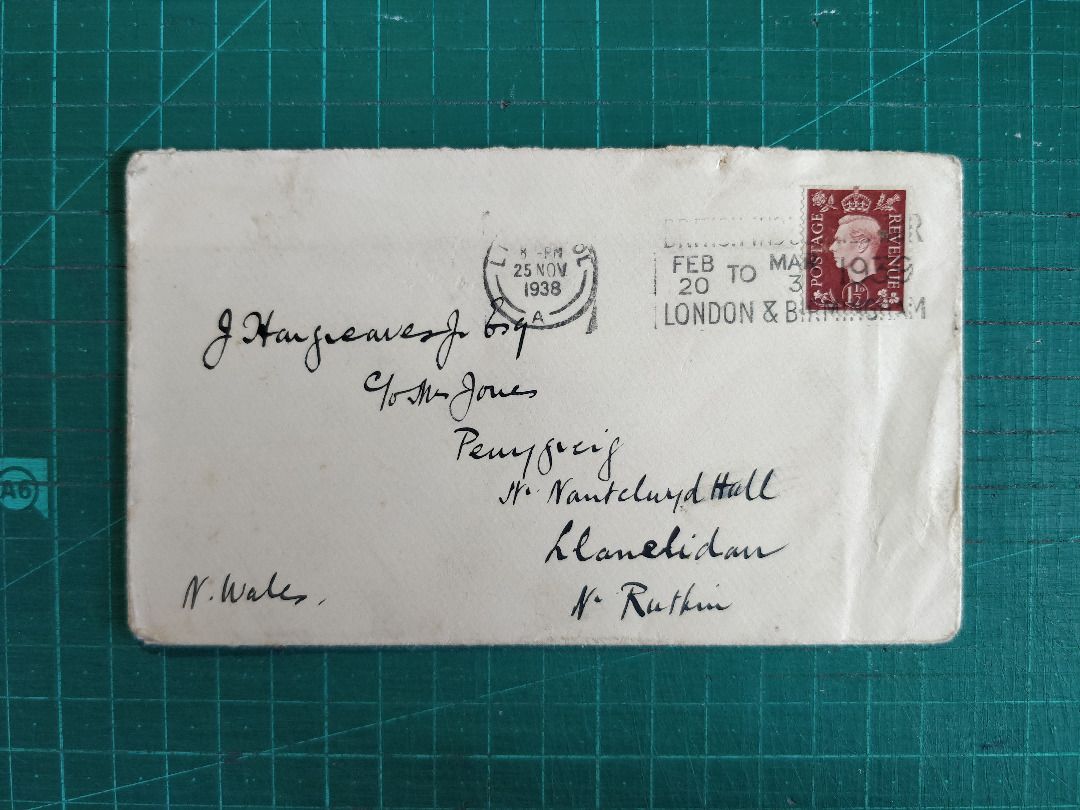 BRITISH INDUSTRIES FAIR
FEB 20 TO MAR 3 1939
LONDON & BIRMINGHAM
LIVERPOOL
8 - PM
25 NOV
1938
A
POSTAGE
REVENUE
1½D
J Hargreaves Jr Esq
C/o Mrs Jones
Penygreig
Nr Nantclwyd Hall
Llanelidan
Nr Ruthin
N. Wales.
A6